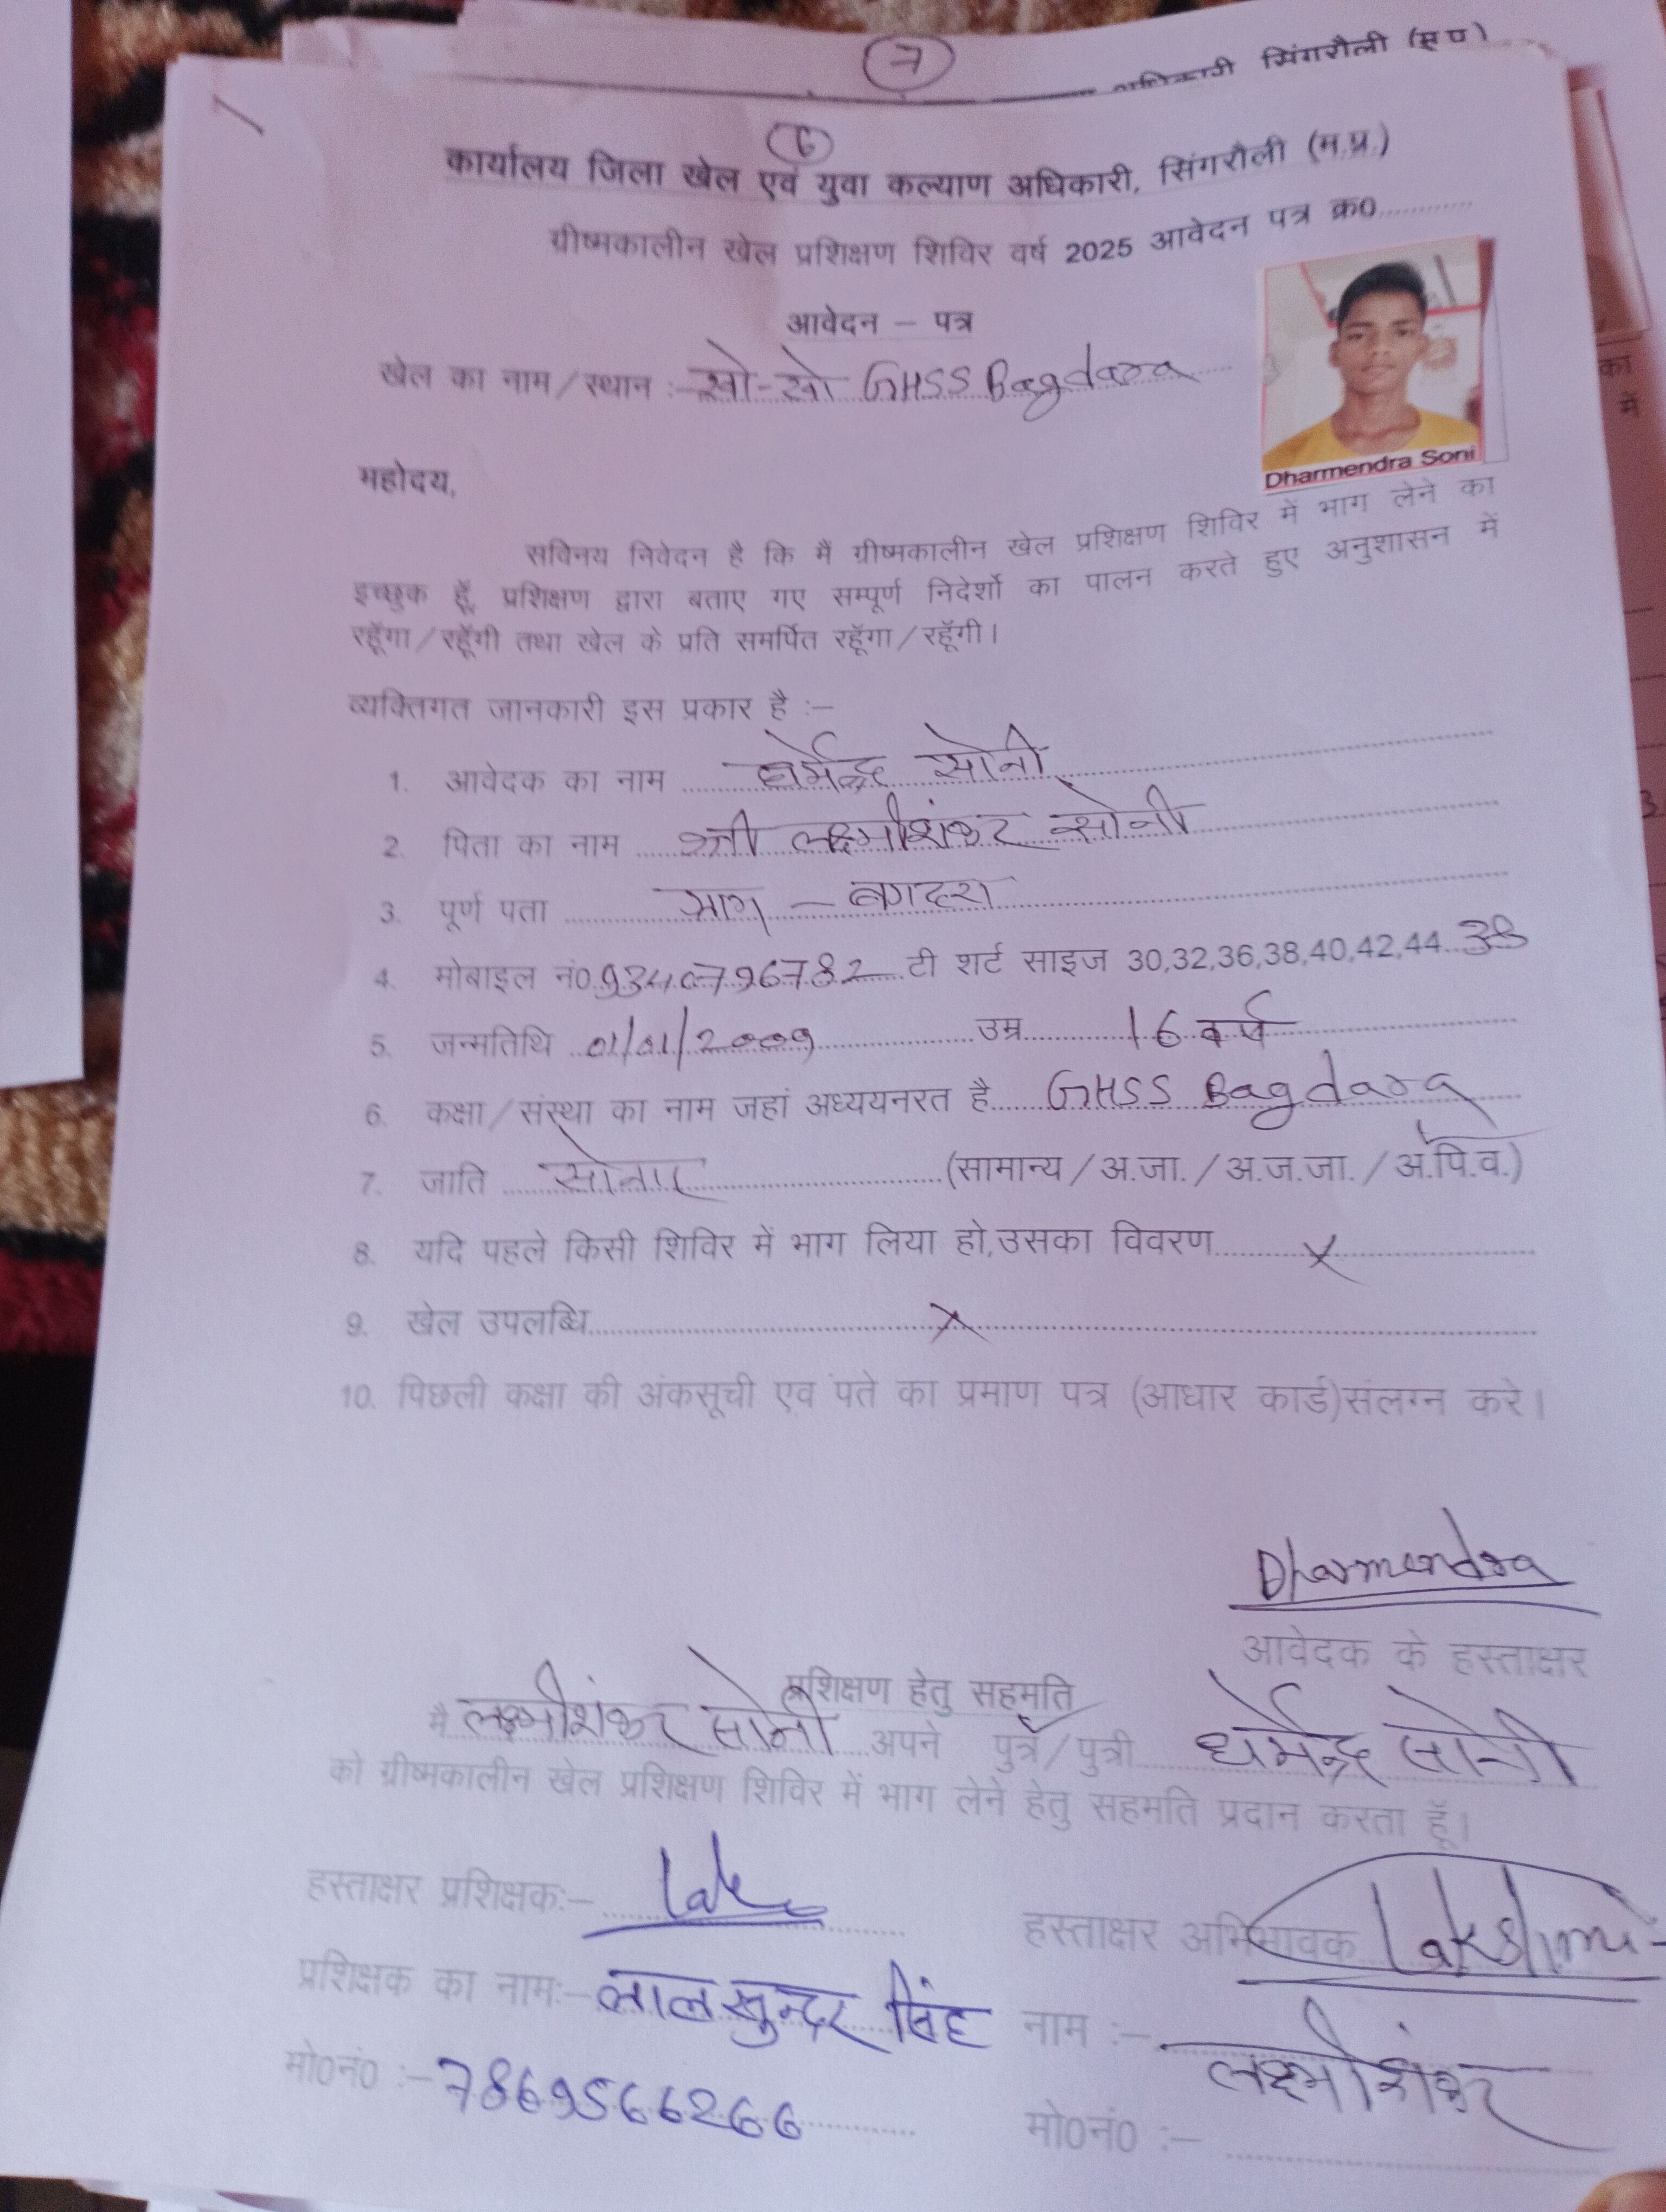 7
अधिकारी सिंगरौली (म प्र)
6
कार्यालय जिला खेल एवं युवा कल्याण अधिकारी, सिंगरौली (म.प्र.)
ग्रीष्मकालीन खेल प्रशिक्षण शिविर वर्ष 2025 आवेदन पत्र क्र0............
आवेदन – पत्र
खेल का नाम/स्थान :- खो-खो GHSS Bagdara
Dharmendra Soni
महोदय,
सविनय निवेदन है कि मैं ग्रीष्मकालीन खेल प्रशिक्षण शिविर में भाग लेने का
इच्छुक हूँ, प्रशिक्षण द्वारा बताए गए सम्पूर्ण निदेर्शो का पालन करते हुए अनुशासन में
रहूँगा/रहूँगी तथा खेल के प्रति समर्पित रहूँगा/रहूँगी।
व्यक्तिगत जानकारी इस प्रकार है :–
1. आवेदक का नाम धर्मेन्द्र सोनी
2. पिता का नाम श्री लक्ष्मीशंकर सोनी
3. पूर्ण पता ग्राम – बगदरा
4. मोबाइल नं0 9340796782 टी शर्ट साइज 30,32,36,38,40,42,44 38
5. जन्मतिथि 01/01/2009 उम्र 16 वर्ष
6. कक्षा/संस्था का नाम जहां अध्ययनरत है GHSS Bagdara
7. जाति सोनार (सामान्य/अ.जा./अ.ज.जा./अ.पि.व.)
8. यदि पहले किसी शिविर में भाग लिया हो,उसका विवरण x
9. खेल उपलब्धि x
10. पिछली कक्षा की अंकसूची एव पते का प्रमाण पत्र (आधार कार्ड)संलग्न करे।
Dharmendra
आवेदक के हस्ताक्षर
प्रशिक्षण हेतु सहमति
मै लक्ष्मीशंकर सोनी अपने पुत्र/पुत्री धर्मेन्द्र सोनी
को ग्रीष्मकालीन खेल प्रशिक्षण शिविर में भाग लेने हेतु सहमति प्रदान करता हूँ।
हस्ताक्षर प्रशिक्षक:–
हस्ताक्षर अभिभावक Lakshmi
प्रशिक्षक का नाम:– लाल सुन्दर सिंह
नाम :– लक्ष्मीशंकर
मो0नं0 :– 7869566266
मो0नं0 :–